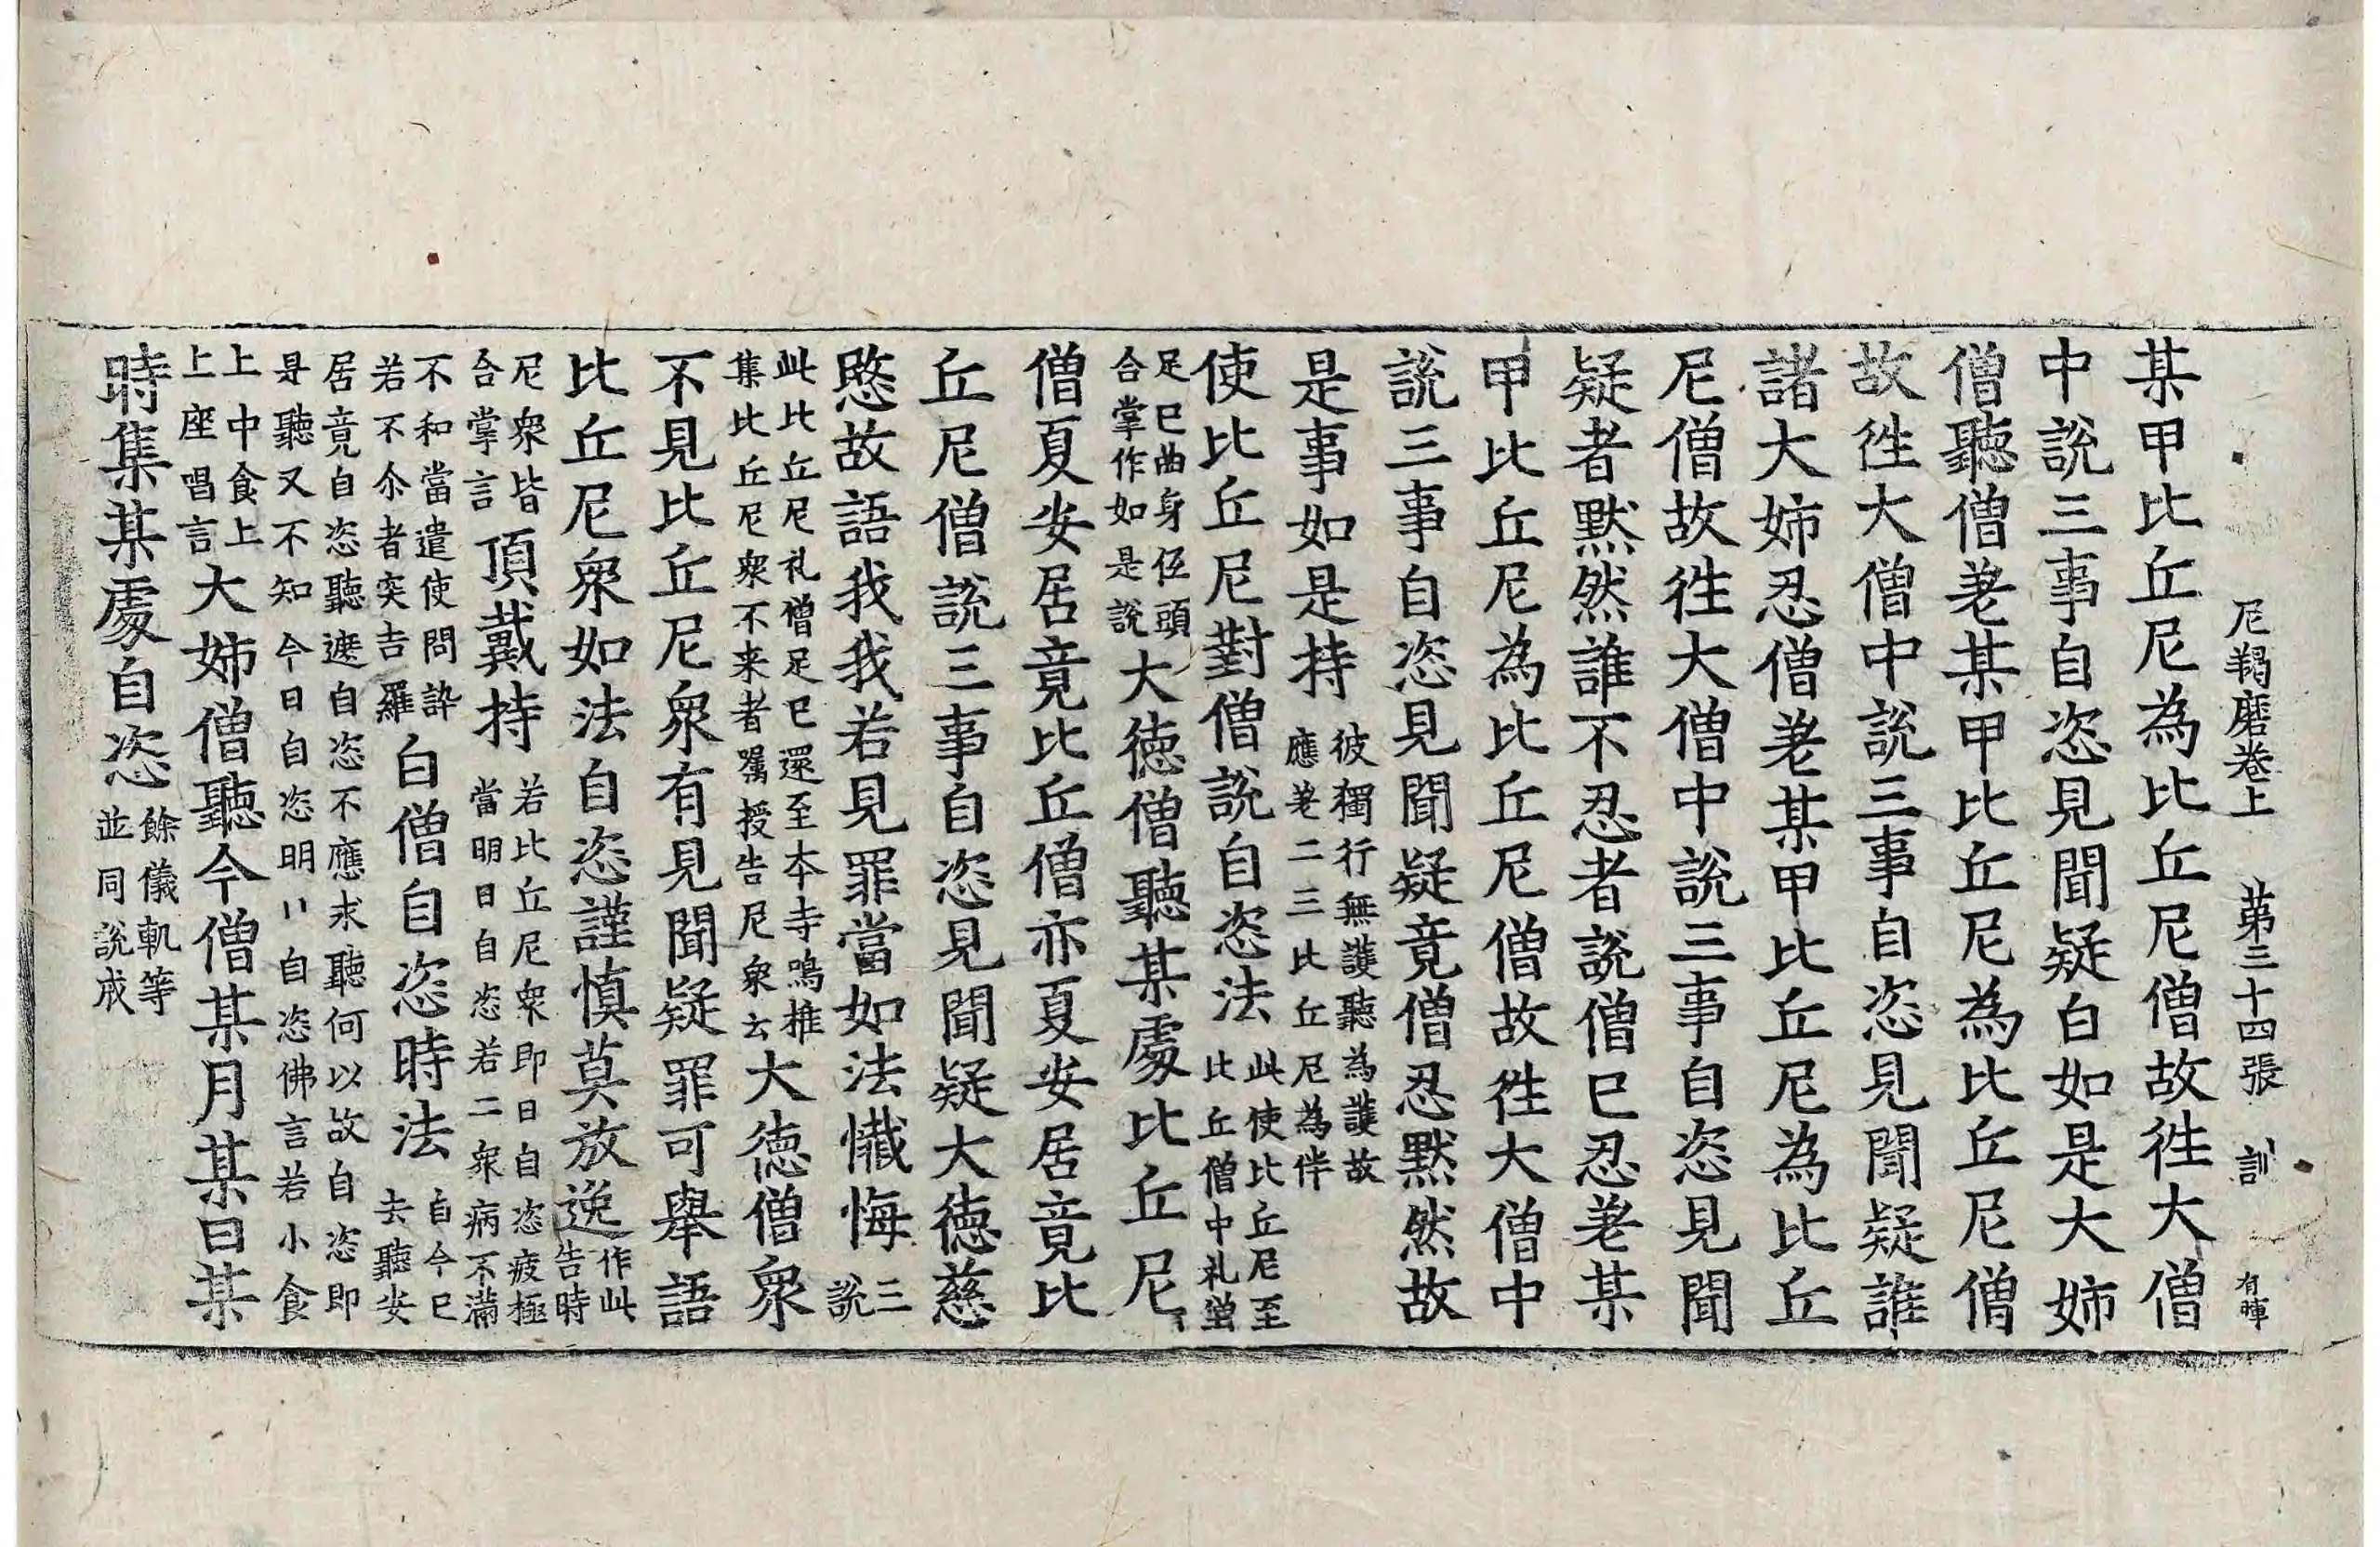 尼羯磨卷上　第三十四張　訓　有暉
某甲比丘尼為比丘尼僧故徃大僧
中說三事自恣見聞疑白如是大姊
僧聽僧差某甲比丘尼為比丘尼僧
故徃大僧中說三事自恣見聞疑誰
諸大姊忍僧差某甲比丘尼為比丘
尼僧故徃大僧中說三事自恣見聞
疑者默然誰不忍者說僧已忍差某
甲比丘尼為比丘尼僧故徃大僧中
說三事自恣見聞疑竟僧忍默然故
是事如是持
彼獨行無護聽為護故
應差二三比丘尼為伴
使比丘尼對僧說自恣法
此使比丘尼至
比丘僧中礼僧
足已曲身低頭
合掌作如是說
大德僧聽某處比丘尼
僧夏安居竟比丘僧亦夏安居竟比
丘尼僧說三事自恣見聞疑大德慈
愍故語我我若見罪當如法懺悔
三
說
此比丘尼礼僧足已還至本寺鳴椎
集比丘尼衆不来者囑授告尼衆云
大德僧衆
不見比丘尼衆有見聞疑罪可舉語
比丘尼衆如法自恣謹慎莫放逸
作此
告時
尼衆皆
合掌言
頂戴持
若比丘尼衆即日自恣疲極
當明日自恣若二衆病不滿
不和當遣使問訊
若不尒者突吉羅
白僧自恣時法
自今已
去聽安
居竟自恣聽遮自恣不應求聽何以故自恣即
是聽又不知今日自恣明〃自恣佛言若小食
上中食上
上座唱言
大姊僧聽今僧某月某日某
時集某處自恣
餘儀軌等
並同說戒